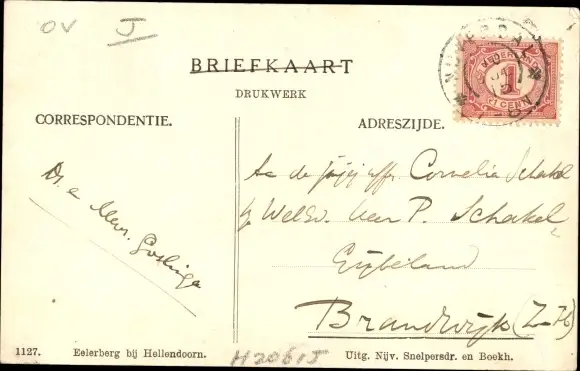 OV J
NIJVERDAL
NEDERLAND
1
CENT
BRIEFKAART
DRUKWERK
CORRESPONDENTIE.
ADRESZIJDE.
Aa de Cornelia Schakel
p/ Weled. heer P. Schakel,
Dr. e Mevr. Goslinga
Brandwijk (Z-H)
1127. Eelerberg bij Hellendoorn.
H206IJ
Uitg. Nijv. Snelpersdr. en Boekh.